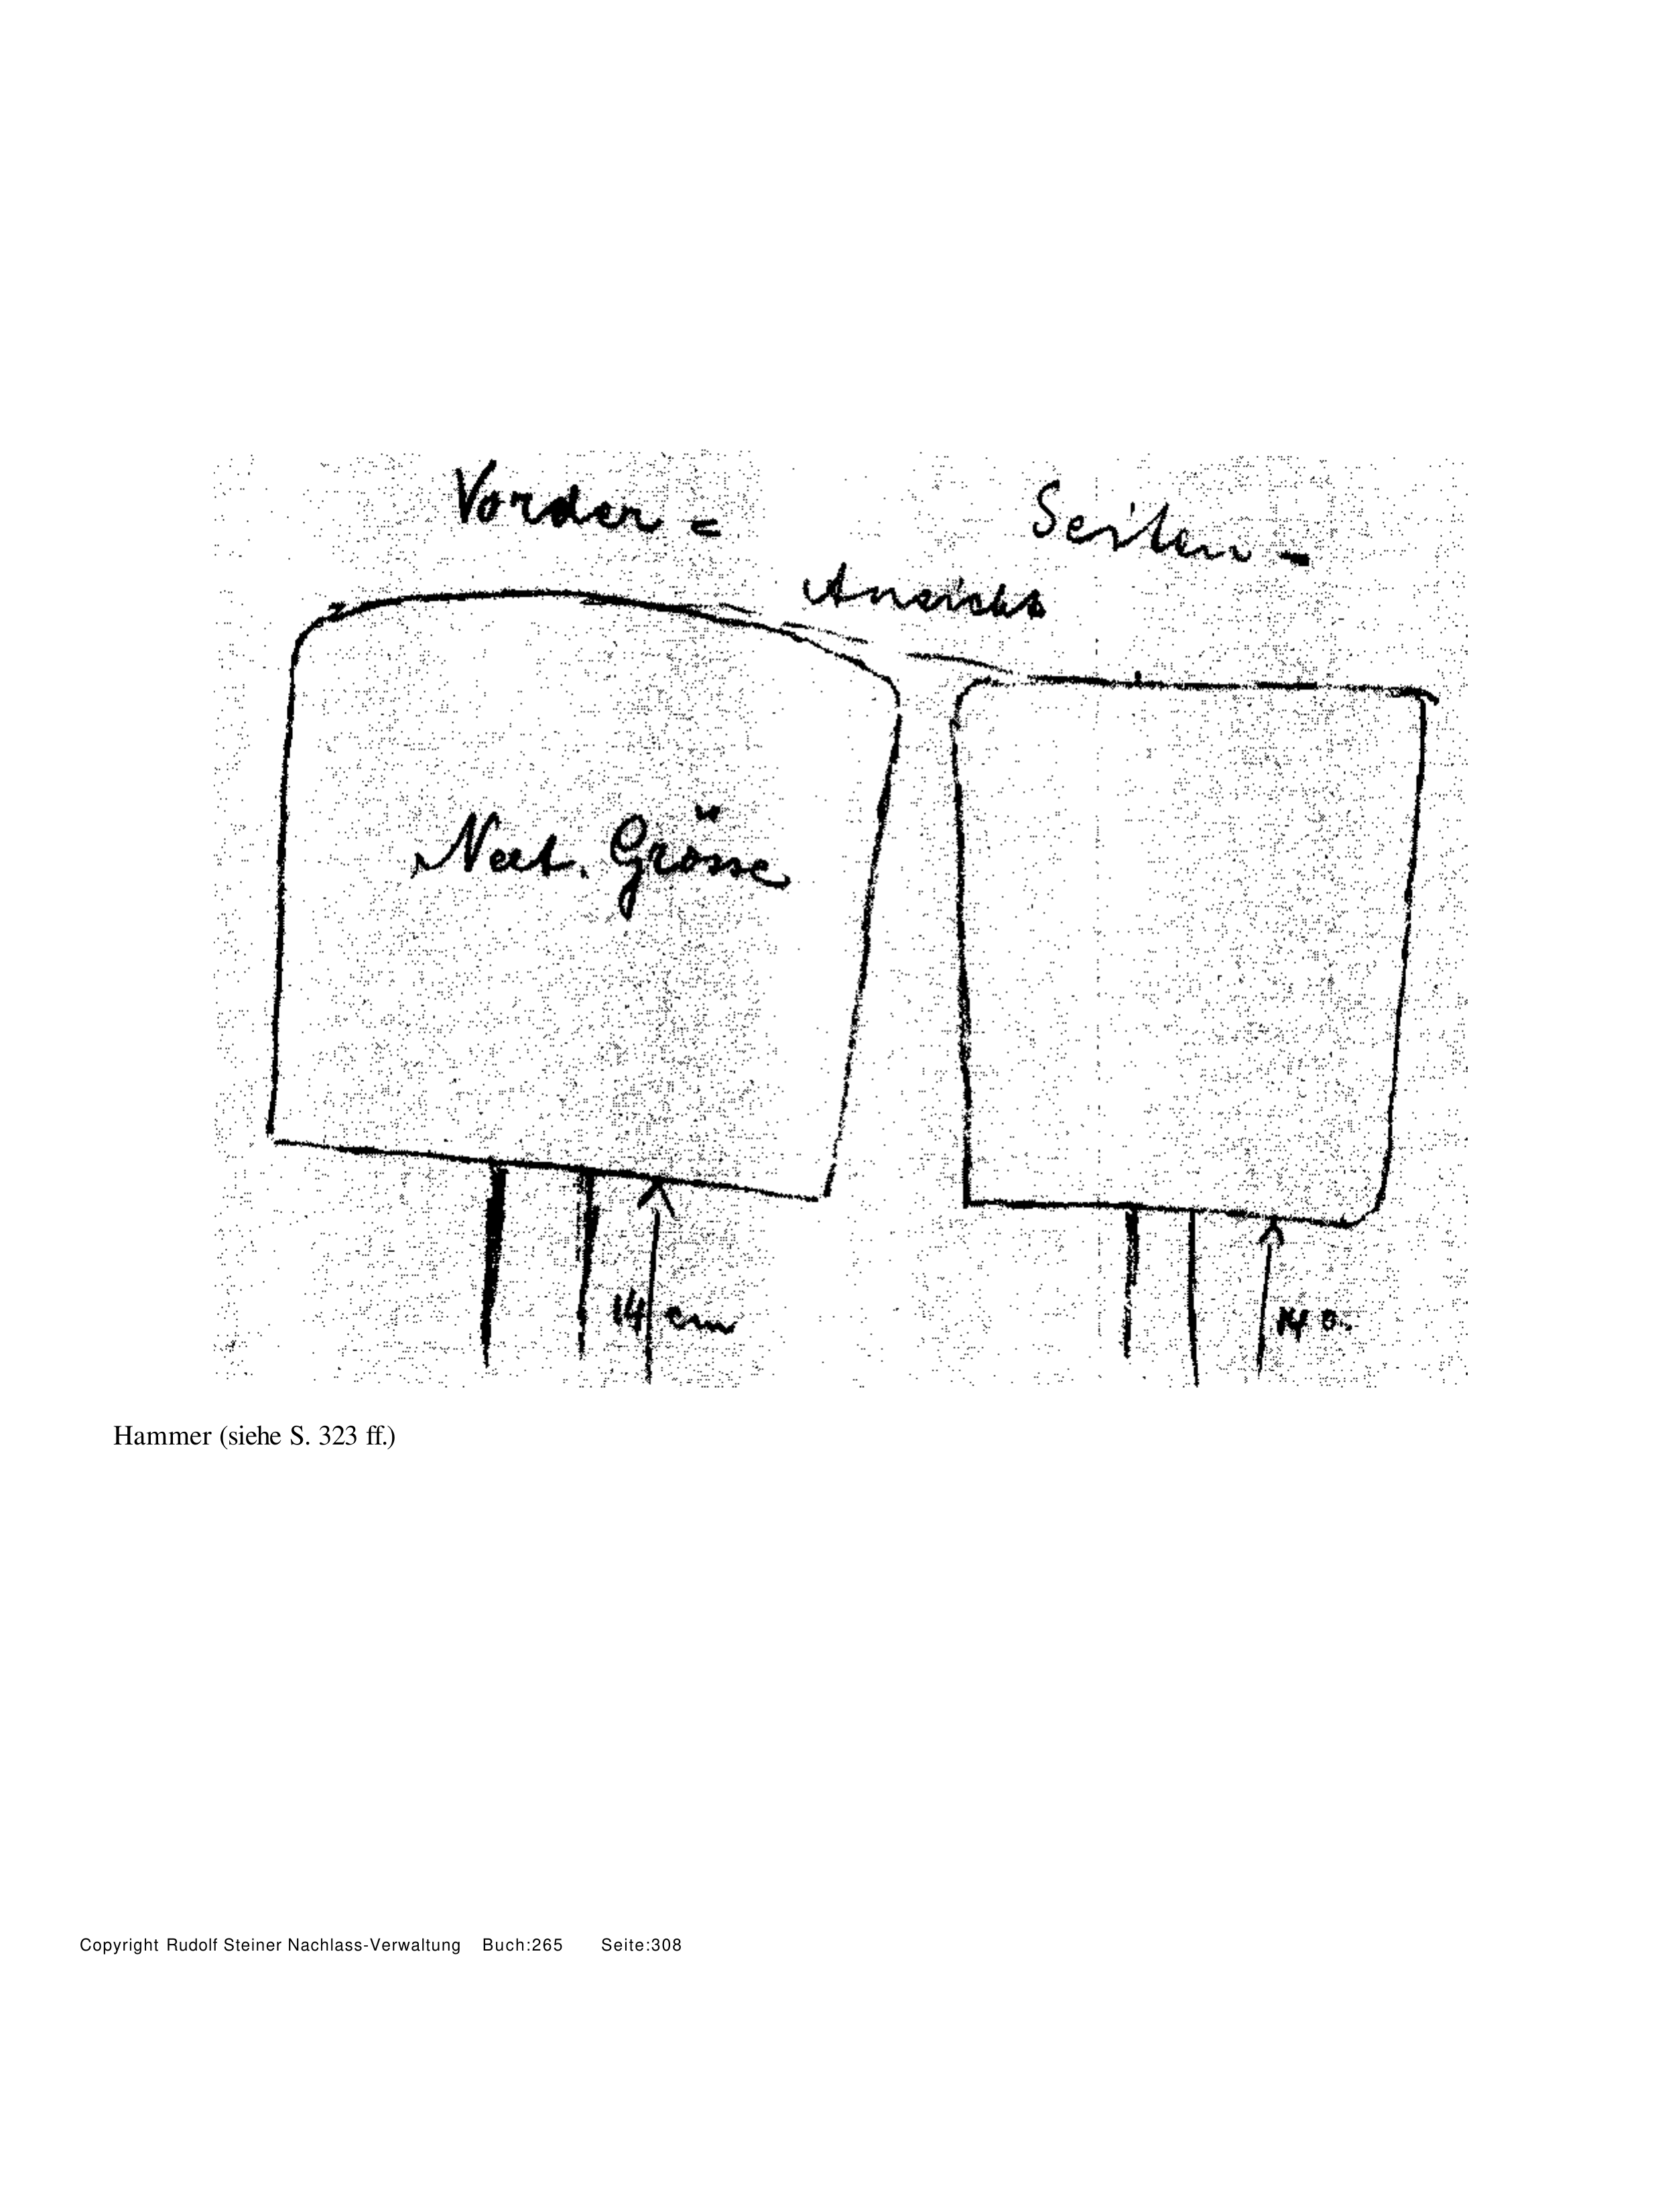 Vorder = Seiten -
Ansicht
Nat. Grösse
14 cm
Hammer (siehe S. 323 ff.)
Copyright Rudolf Steiner Nachlass-Verwaltung Buch:265 Seite:308